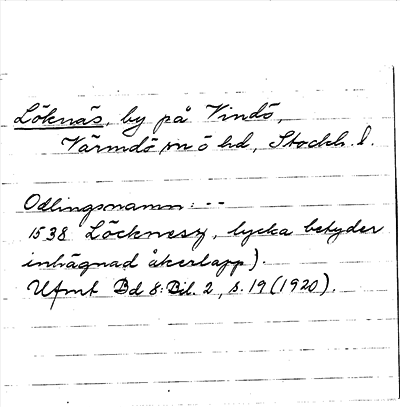 Löknäs, by på Vindö,
Värmdö, m ö hd, Stockh. l.
Odlingsnamn: --
1538 Löcknesz, lycka betyder
inhägnad åkerlapp).
Ufmt Bd 8: Bil. 2, s. 19 (1920).